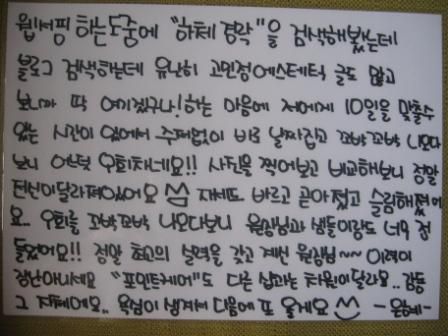 웹서핑 하는도중에 "하체 경락"을 검색해봤는데
블로그 검색하는데 유난히 고민정에스테틱 글도 많고
보니까 딱 여기겠구나! 하는 마음에 저에게 10일을 맞출수
있는 시간이 있어서 주저없이 바로 날짜잡고 꼬박꼬박 나오다
보니 어느덧 9회차네요!! 사진을 찍어보고 비교해보니 정말
전신이달라져있어요 자세도 바르고 곧아졌고 슬림해졌어
요. 9회를 꼬박꼬박 나오다보니 원장님과 샘들이랑도 너무 정
들었어요!! 정말 최고의 실력을 갖고 계신 원장님~~ 이력이
장난아니세요 "포인트케어"도 다른 샵과는 차원이달라요.. 감동
그 자체에요.. 욕심이 생겨서 다음에 또 올게요 -은혜-